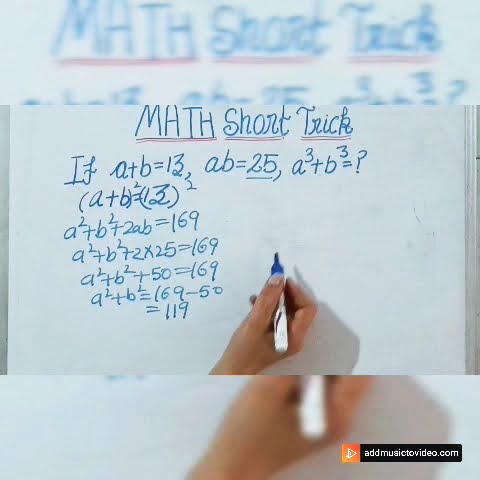 MATH Short Trick
MATH Short Trick
If a+b=13, ab=25, a³+b³=?
(a+b)²=(13)²
a²+b²+2ab=169
a²+b²+2×25=169
a²+b²+50=169
a²+b²=169-50
=119
addmusictovideo.com